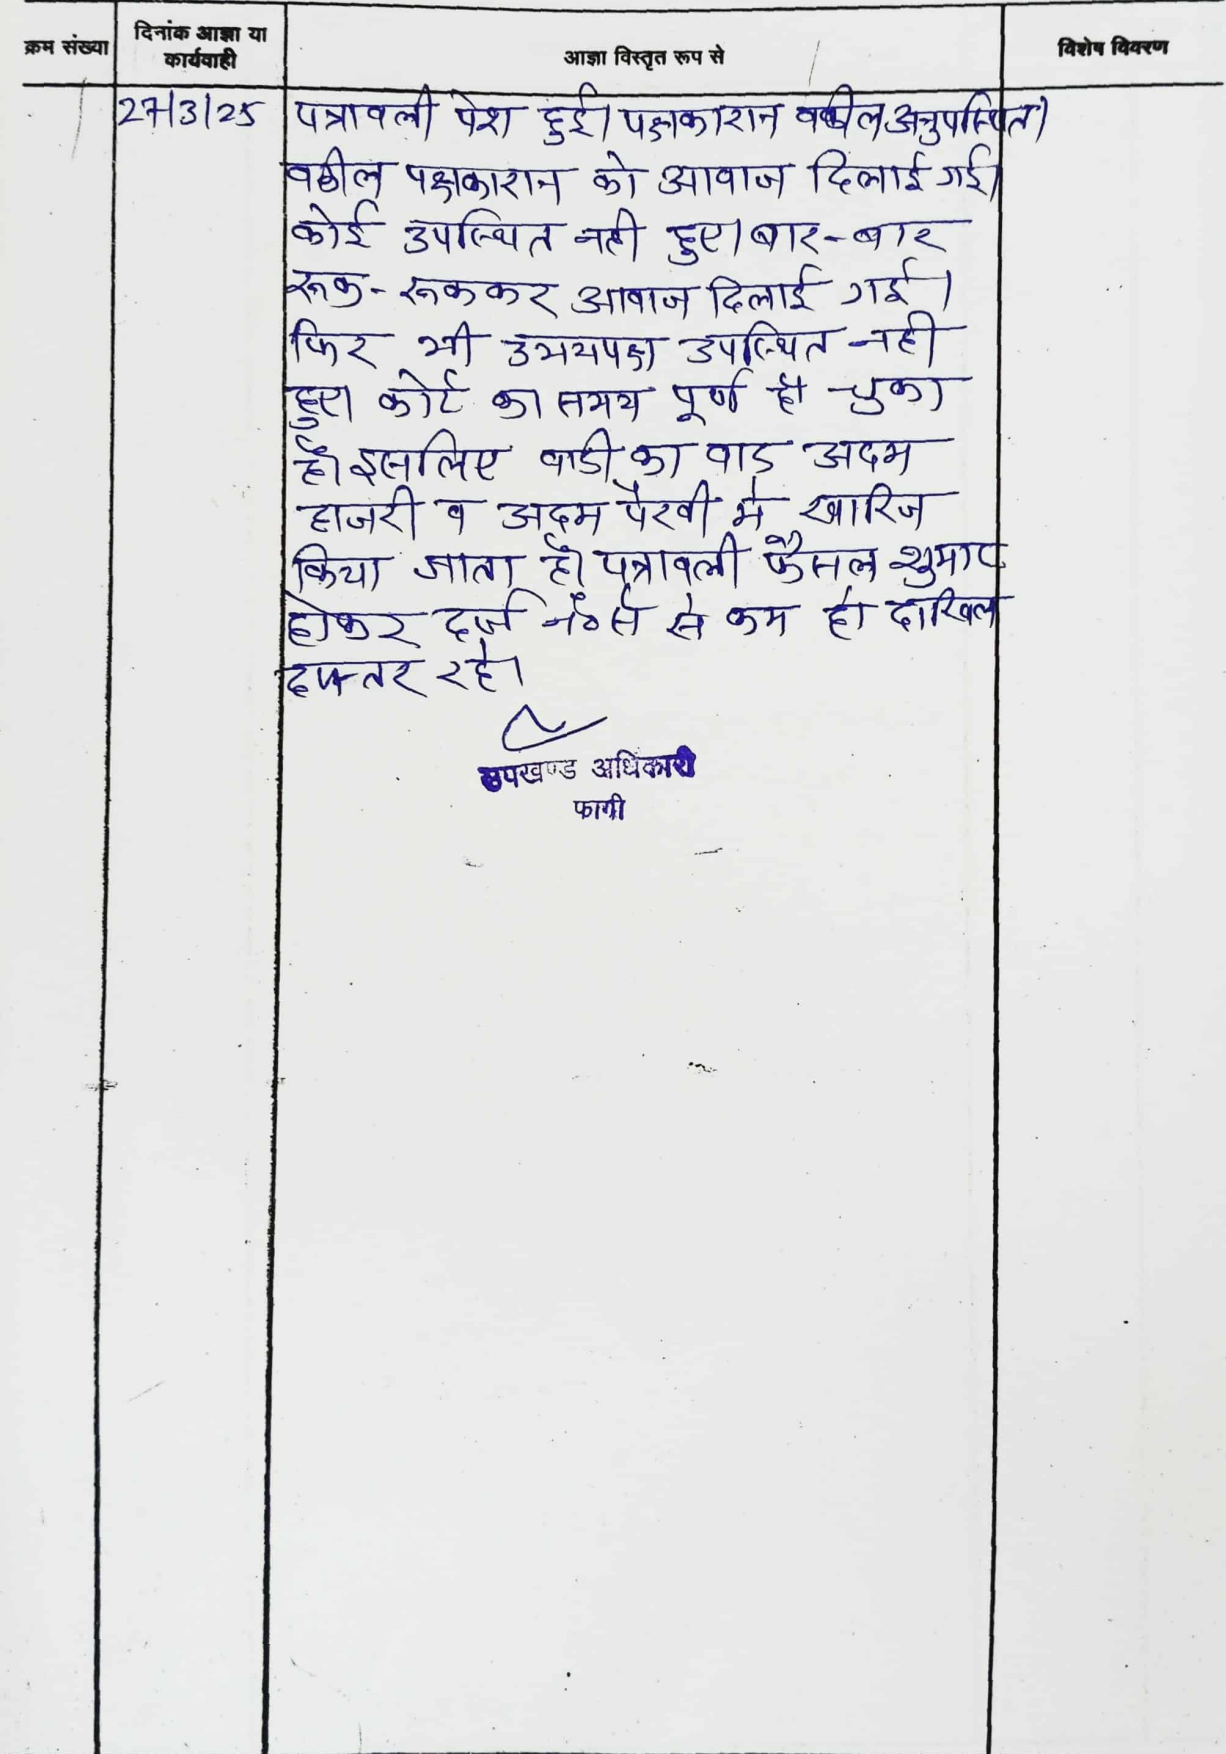 क्रम संख्या
दिनांक आज्ञा या
कार्यवाही
आज्ञा विस्तृत रूप से
विशेष विवरण
27/3/25
पत्रावली पेश हुई। पक्षकारान वकील अनुपस्थित।
वकील पक्षकारान को आवाज दिलाई गई।
कोई उपस्थित नही हुए। बार-बार
रूक-रूककर आवाज दिलाई गई।
फिर भी उभयपक्ष उपस्थित नही
हुए। कोर्ट का समय पूर्ण हो चुका
है। इसलिए वादी का वाद अदम
हाजरी व अदम पैरवी में खारिज
किया जाता है। पत्रावली फैसल शुमार
होकर दर्ज नं० से कम हो दाखिल
दफ्तर रहे।
उपखण्ड अधिकारी
फागी